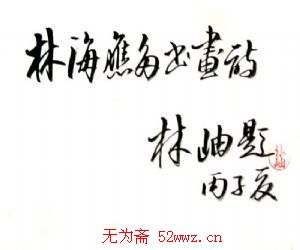 林海應多书畫诗
林岫题
丙子夏
无为斋 52wwz.cn